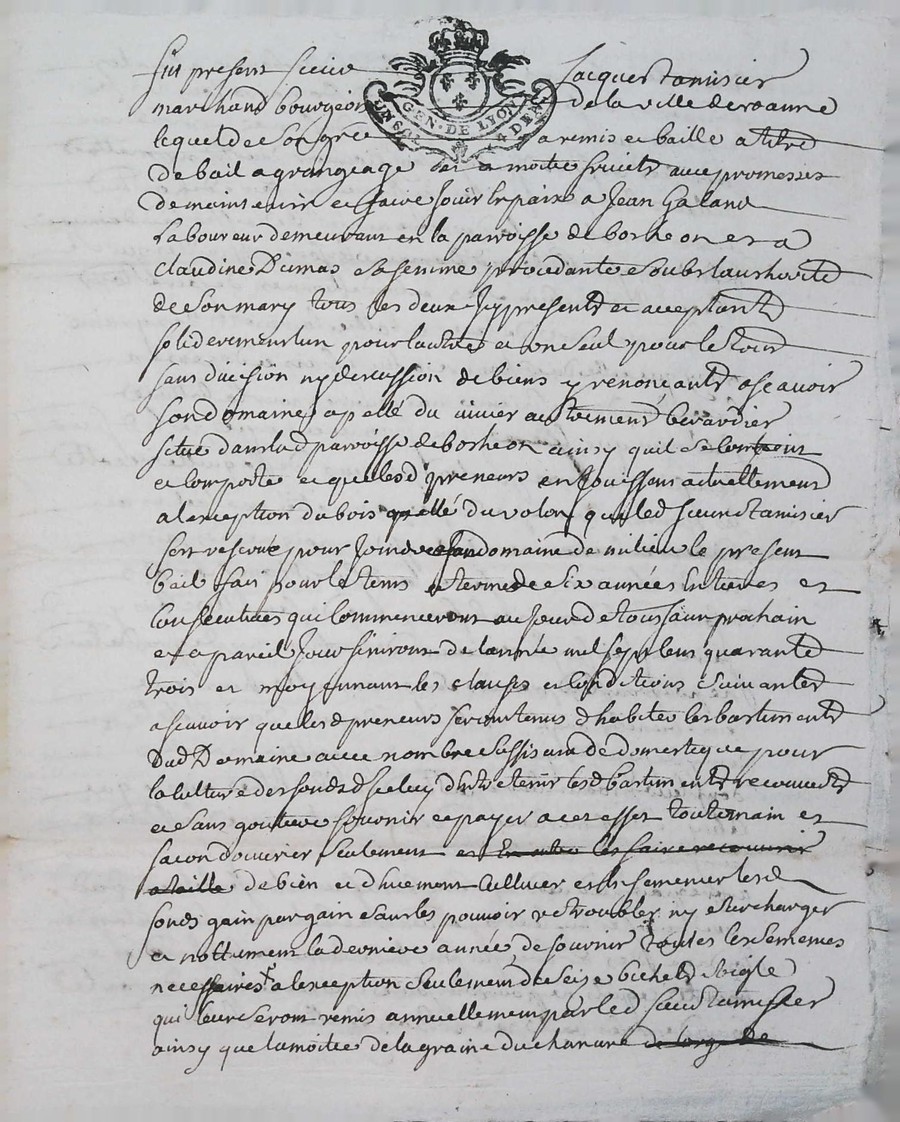 Fut present sieur Jacques tamisier
GEN · DE LYON
UN SOL
DEN
marchand bourgeois de la ville de roanne
lequel de son gré a remis et baillé a titre
de bail a grangeage a moitié fruicts avec promesses
de maintenir et faire jouir en paix a Jean Galand
Laboureur demeurant en la paroisse de et a
claudine Dumas sa femme procedante soubs lauthorité
de son mary tous les deux Jcy presents et acceptants
solidairement lun pour lautre et un seul pour le tout
sans division ny discussion de biens y renonçants ascavoir
son domaine apellé du vivier autrement berardier
situé dans lad paroisse de ainsy quil se contient
et comporte et que lesd preneurs en Jouissent actuellement
a lexception du bois apellé du volon que led sieur tamisier
sest reservé pour Joindre a son domaine de milieu le present
bail fait pour le tems et terme de six années Entieres et
consecutives qui commenceront au Jour de toussaint prochain
et a pareil Jour finiront de lannée mil sept cens quarante
trois et moyennant les clauses et conditions suivantes
ascavoir que lesd preneurs seront tenus dhabiter les bastiments
Dud Domaine avec nombre suffisant de domestique pour
la culture des fonds diceluy dentretenir lesd bastiments recouverts
et sans goutiere fournir et payer a cet effet toute main et
façon douvrier seulement et En outre les faire recouvrir
a taille de bien et duement cultiver et ensemencer lesd
fonds gain par gain sans les pouvoir retroubler ny surcharger
et nottament la derniere année de fournir toutes les semences
necessaires a lexception seulement de seise bichets seigle
qui leur seront remis annuellement par led sieur tamisier
ainsy que la moitié de la graine du chanvre de lorge de